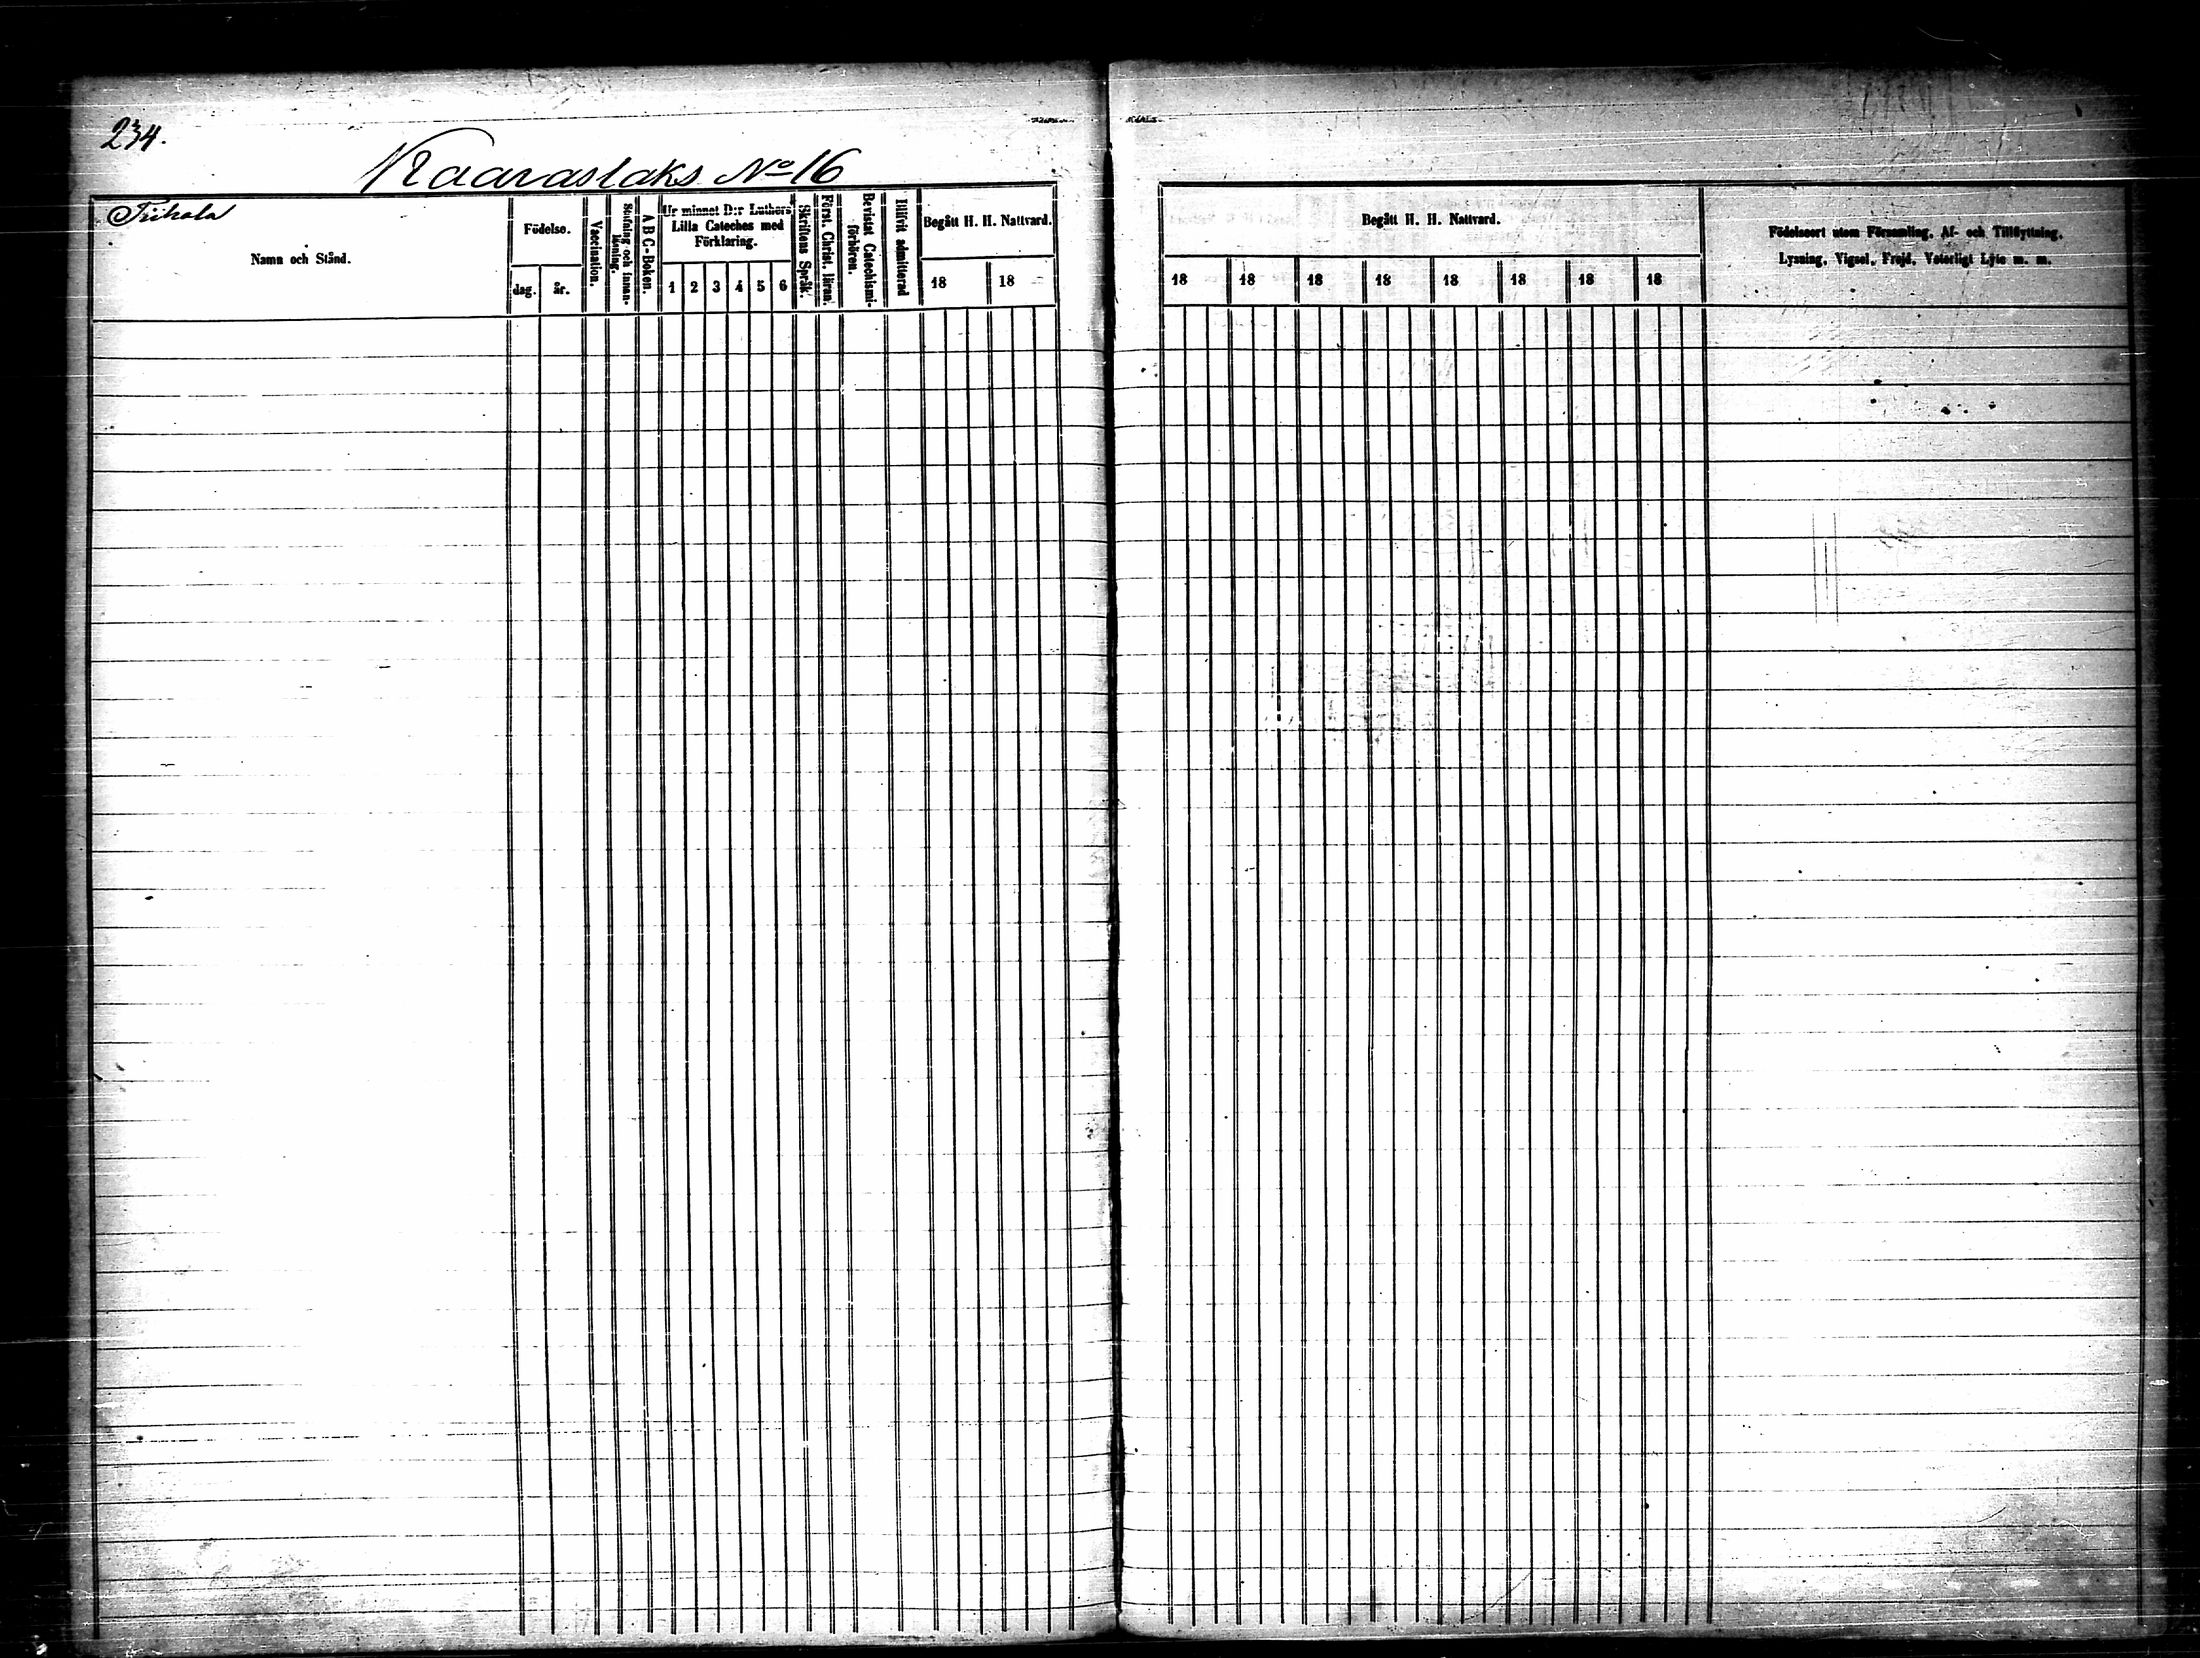 234.
Kaaraslaks No 16
Namn och Stånd.
Födelse.
dag. år.
Vaccination.
Stafning och innan-
läsning.
A B C-Boken.
Ur minnet D:r Luthers
Lilla Cateches med
Förklaring.
1 2 3 4 5 6
Skriftens Språk.
Först. Christ. läran.
Bevistat Catechismi-
förhören.
Blifvit admitterad
Begått H. H. Nattvard.
18 18
Begått H. H. Nattvard.
18 18 18 18 18 18 18 18
Födelseort utom Församling, Af- och Tillflyttning,
Lysning, Vigsel, Frejd, Veterligt Lyte m. m.